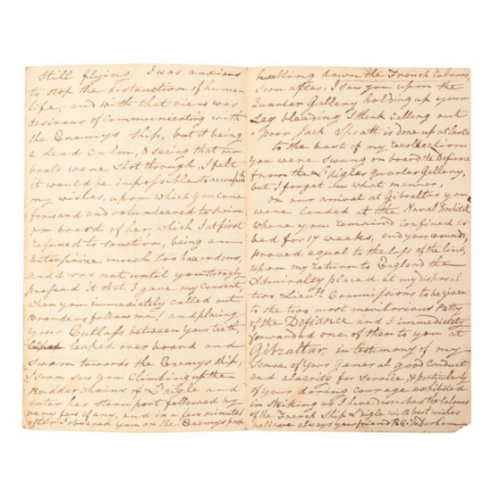 Still flying, I was anxious
to stop the distruction of human
life, and with that view was
desirous of communicating with
the Enemys Ship, but it being
a dead calm, & seeing that our
boats were Shot through, I felt
it would be impossible to accomplish
my wishes, upon which you came
forward and volunteered to swim
on board of her, which I at first
refused to sanction, being an
enterprise much too hazardous,
and it was not until you strongly
pressed it that I gave my consent
when you immediately called out
boarders follow me! and placing
your Cutlass between your teeth,
leaped over board and
Swam towards the Enemys Ship,
I soon saw you Climbing up the
Rudder chains of L'aigle and
enter her stern port followed by
very few if any, and in a few minutes
after I observed you on the Enemys poop
hawling down the French Colours,
Soon after, I saw you upon the
Quarter Gallery holding up your
Leg bleeding I think Calling out
Poor Jack Spratt is done up at last
to the best of my recollection
you were Swung on board the Defiance
from the L'aigles quarter Gallery,
but I forget in what manner,
on our arrival at Gibraltar you
were landed at the Naval Hospital
where you remained confined to
bed for 17 weeks, and your wound,
proved equal to the loss of the limb,
upon my return to England the
Admiralty placed at my disposal
two Lieuts. Commissions to be given
to the two most meritorious Petty
of the Defiance and I immediately
forwarded one of them to you at
Gibraltar, in testimony of my
Sense of your general good Conduct
and alacrity for Service, & particularly
of your daring courage exhibited
in Striking as I have described the Colours
of the French Ship L'aigle with best wishes
believe always your friend P.C.H. Durham